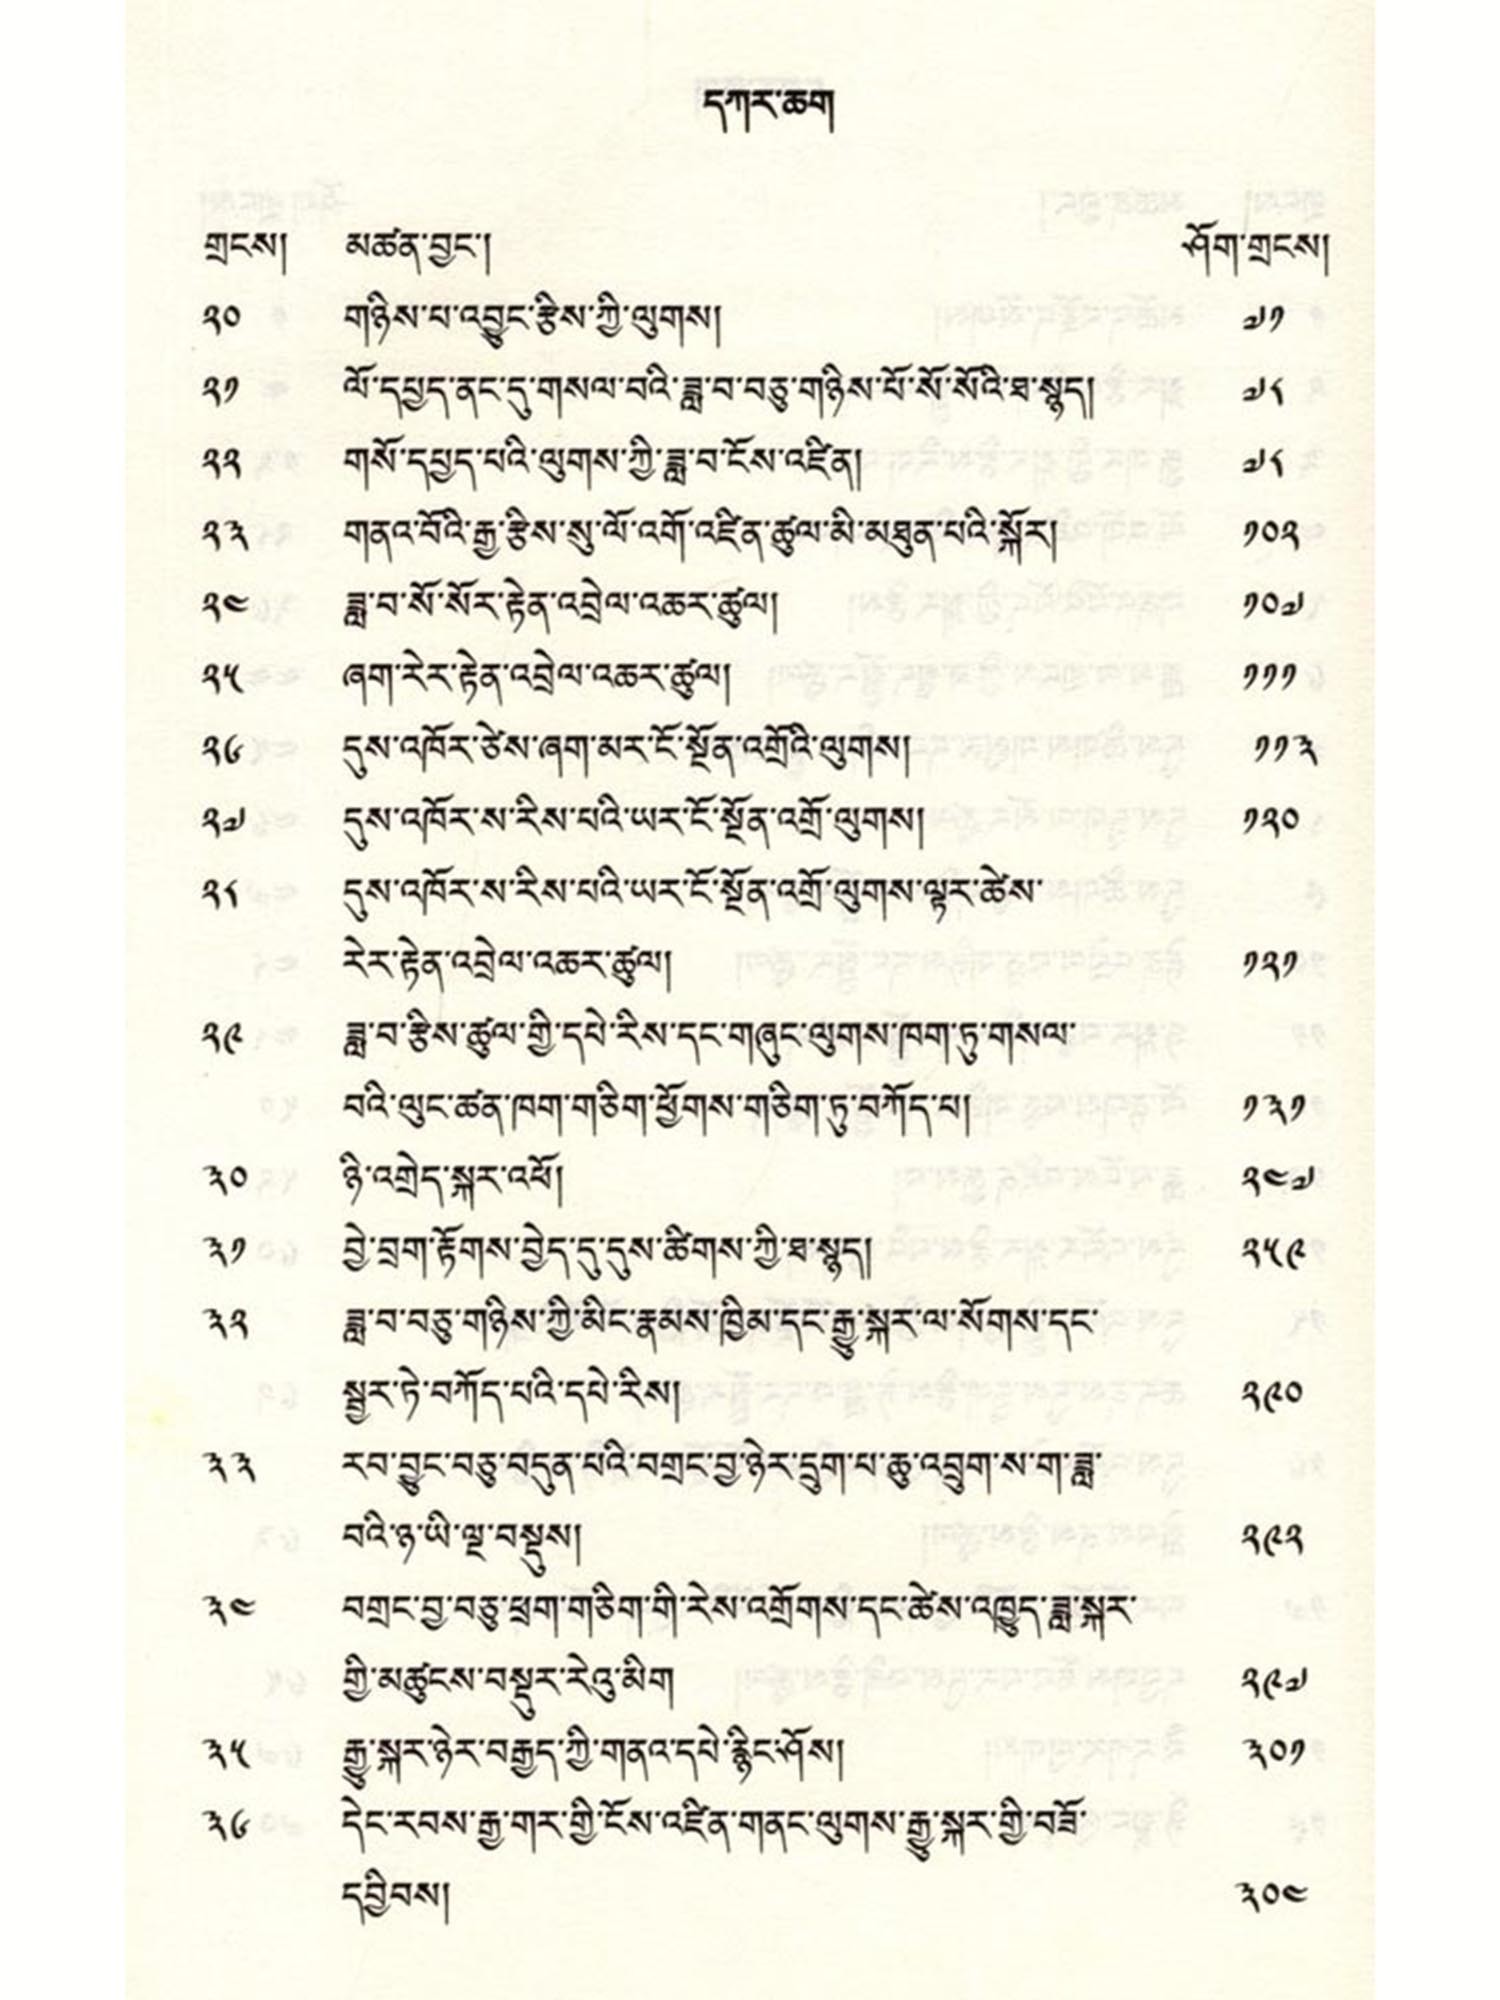 དཀར་ཆག
གྲངས། མཚན་བྱང་། ཤོག་གྲངས།
༢༠ གཉིས་པ་འབྱུང་རྩིས་ཀྱི་ལུགས། ༧༡
༢༡ ལོ་དཔྱད་ནང་དུ་གསལ་བའི་ཟླ་བ་བཅུ་གཉིས་པོ་སོ་སོའི་ཐ་སྙད། ༧༨
༢༢ གསོ་དཔྱད་པའི་ལུགས་ཀྱི་ཟླ་བ་ངོས་འཛིན། ༧༨
༢༣ གནའ་བོའི་རྒྱ་རྩིས་སུ་ལོ་འགོ་འཛིན་ཚུལ་མི་མཐུན་པའི་སྐོར། ༡༠༢
༢༤ ཟླ་བ་སོ་སོར་རྟེན་འབྲེལ་འཆར་ཚུལ། ༡༠༧
༢༥ ཞག་རེར་རྟེན་འབྲེལ་འཆར་ཚུལ། ༡༡༡
༢༦ དུས་འཁོར་ཙེས་ཞག་མར་ངོ་སྔོན་འགྲོའི་ལུགས། ༡༡༣
༢༧ དུས་འཁོར་ས་རིས་པའི་ཡར་ངོ་སྔོན་འགྲོ་ལུགས། ༡༢༠
༢༨ དུས་འཁོར་ས་རིས་པའི་ཡར་ངོ་སྔོན་འགྲོ་ལུགས་ལྟར་ཚེས་
རེར་རྟེན་འབྲེལ་འཆར་ཚུལ། ༡༢༡
༢༩ ཟླ་བ་རྩིས་ཚུལ་གྱི་དཔེ་རིས་དང་གཞུང་ལུགས་ཁག་ཏུ་གསལ་
བའི་ལུང་ཚན་ཁག་གཅིག་ཕྱོགས་གཅིག་ཏུ་བཀོད་པ། ༡༣༡
༣༠ ཉི་འགྲེད་སྐར་འཕོ། ༢༤༧
༣༡ བྱེ་བྲག་རྟོགས་བྱེད་དུ་དུས་ཚིགས་ཀྱི་ཐ་སྙད། ༢༥༩
༣༢ ཟླ་བ་བཅུ་གཉིས་ཀྱི་མིང་རྣམས་ཁྱིམ་དང་རྒྱུ་སྐར་ལ་སོགས་དང་
སྦྱར་ཏེ་བཀོད་པའི་དཔེ་རིས། ༢༩༠
༣༣ རབ་བྱུང་བཅུ་བདུན་པའི་བགྲང་བྱ་ཉེར་དྲུག་པ་ཆུ་འབྲུག་ས་ག་ཟླ་
བའི་ཉ་ཡི་ལྔ་བསྡུས། ༢༩༢
༣༤ བགྲང་བྱ་བཅུ་ཕྲག་གཅིག་གི་རེས་འགྲོགས་དང་ཚེས་འཁྱུད་ཟླ་སྐར་
གྱི་མཚུངས་བསྡུར་རེའུ་མིག ༢༩༧
༣༥ རྒྱུ་སྐར་ཉེར་བརྒྱད་ཀྱི་གནའ་དཔེ་རྙིང་ཤོས། ༣༠༡
༣༦ དེང་རབས་རྒྱ་གར་གྱི་ངོས་འཛིན་གནང་ལུགས་རྒྱུ་སྐར་གྱི་བཟོ་
དབྱིབས། ༣༠༤